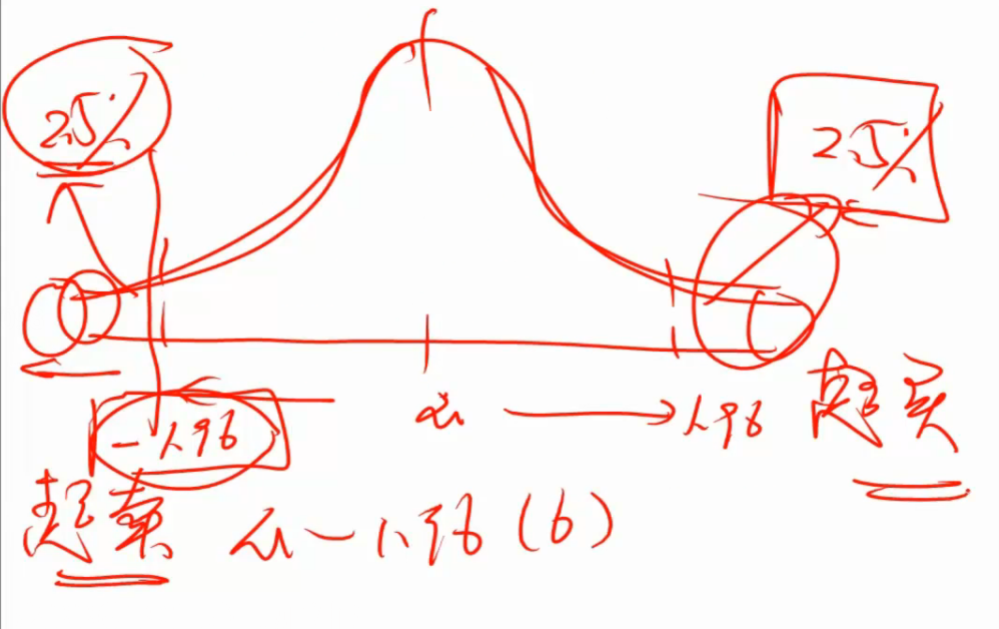 2.5%
2.5%
-1.96
μ
1.96
超买
超卖
μ-1.96(6)